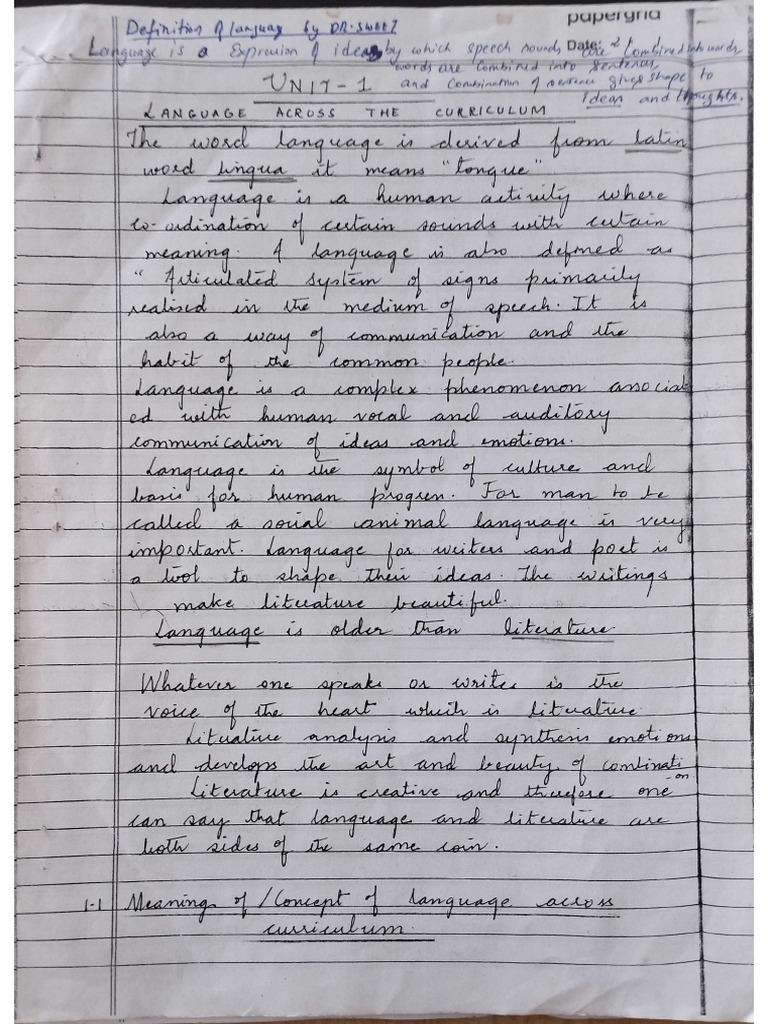 papergrid
Definition of language by DR. SWEET
Date:
Language is a Expression of ideas by which speech sounds are combined into words
words are combined into sentences,
and combination of sentence gives shape to
Ideas and thoughts.
UNIT-1
LANGUAGE ACROSS THE CURRICULUM
The word language is derived from latin
word lingua it means "tongue"
Language is a human activity where
co-ordination of certain sounds with certain
meaning. A language is also defined as
" Articulated system of signs primarily
realised in the medium of speech. It is
also a way of communication and the
habit of the common people.
Language is a complex phenomenon associat
ed with human vocal and auditory
communication of ideas and emotions.
Language is the symbol of culture and
basis for human progress. For man to be
called a social animal language is very
important. Language for writers and poet is
a tool to shape their ideas. The writings
make literature beautiful.
Language is older than literature
Whatever one speaks or writes is the
voice of the heart which is literature
Literature analysis and synthesis emotions
and develops the art and beauty of combinati
-on
Literature is creative and therefore one
can say that language and literature are
both sides of the same coin.
1.1 Meaning of / Concept of language across
curriculum.